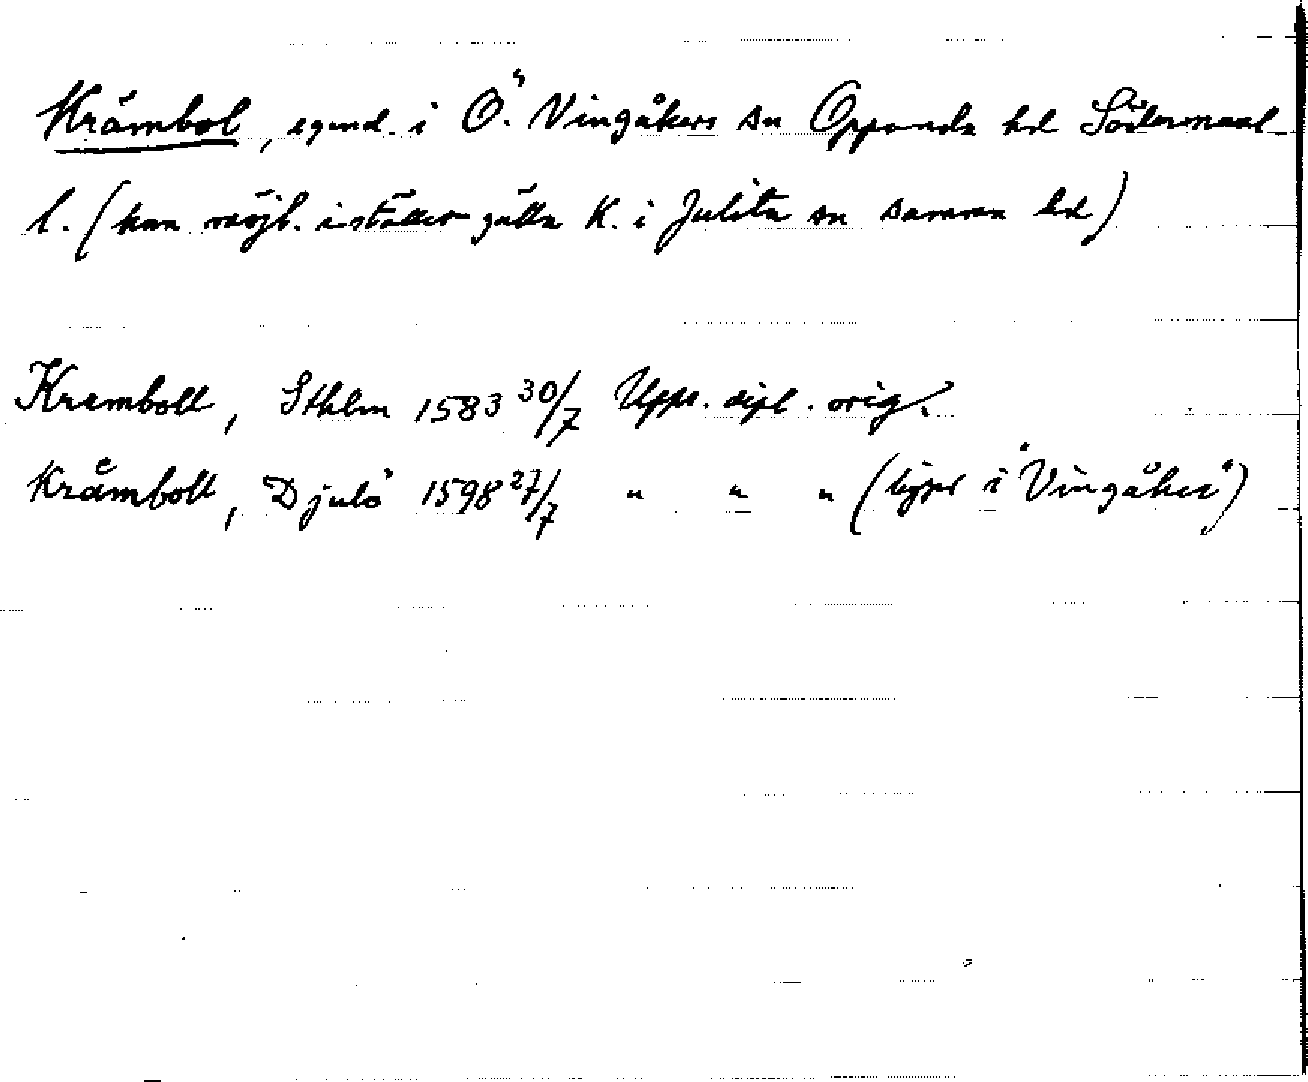 Krämbol, egend. i Ö. Vingåkers sn Oppunda hd Södermanl
l. (kan möjl. i stället gälla K. i Julita sn samma hd)
Kramboll, Sthlm 1583 30/7 Upps. dipl. orig.
Kråmboll, Djulö 1598 27/7 " " " (ligger i "Vingåker")